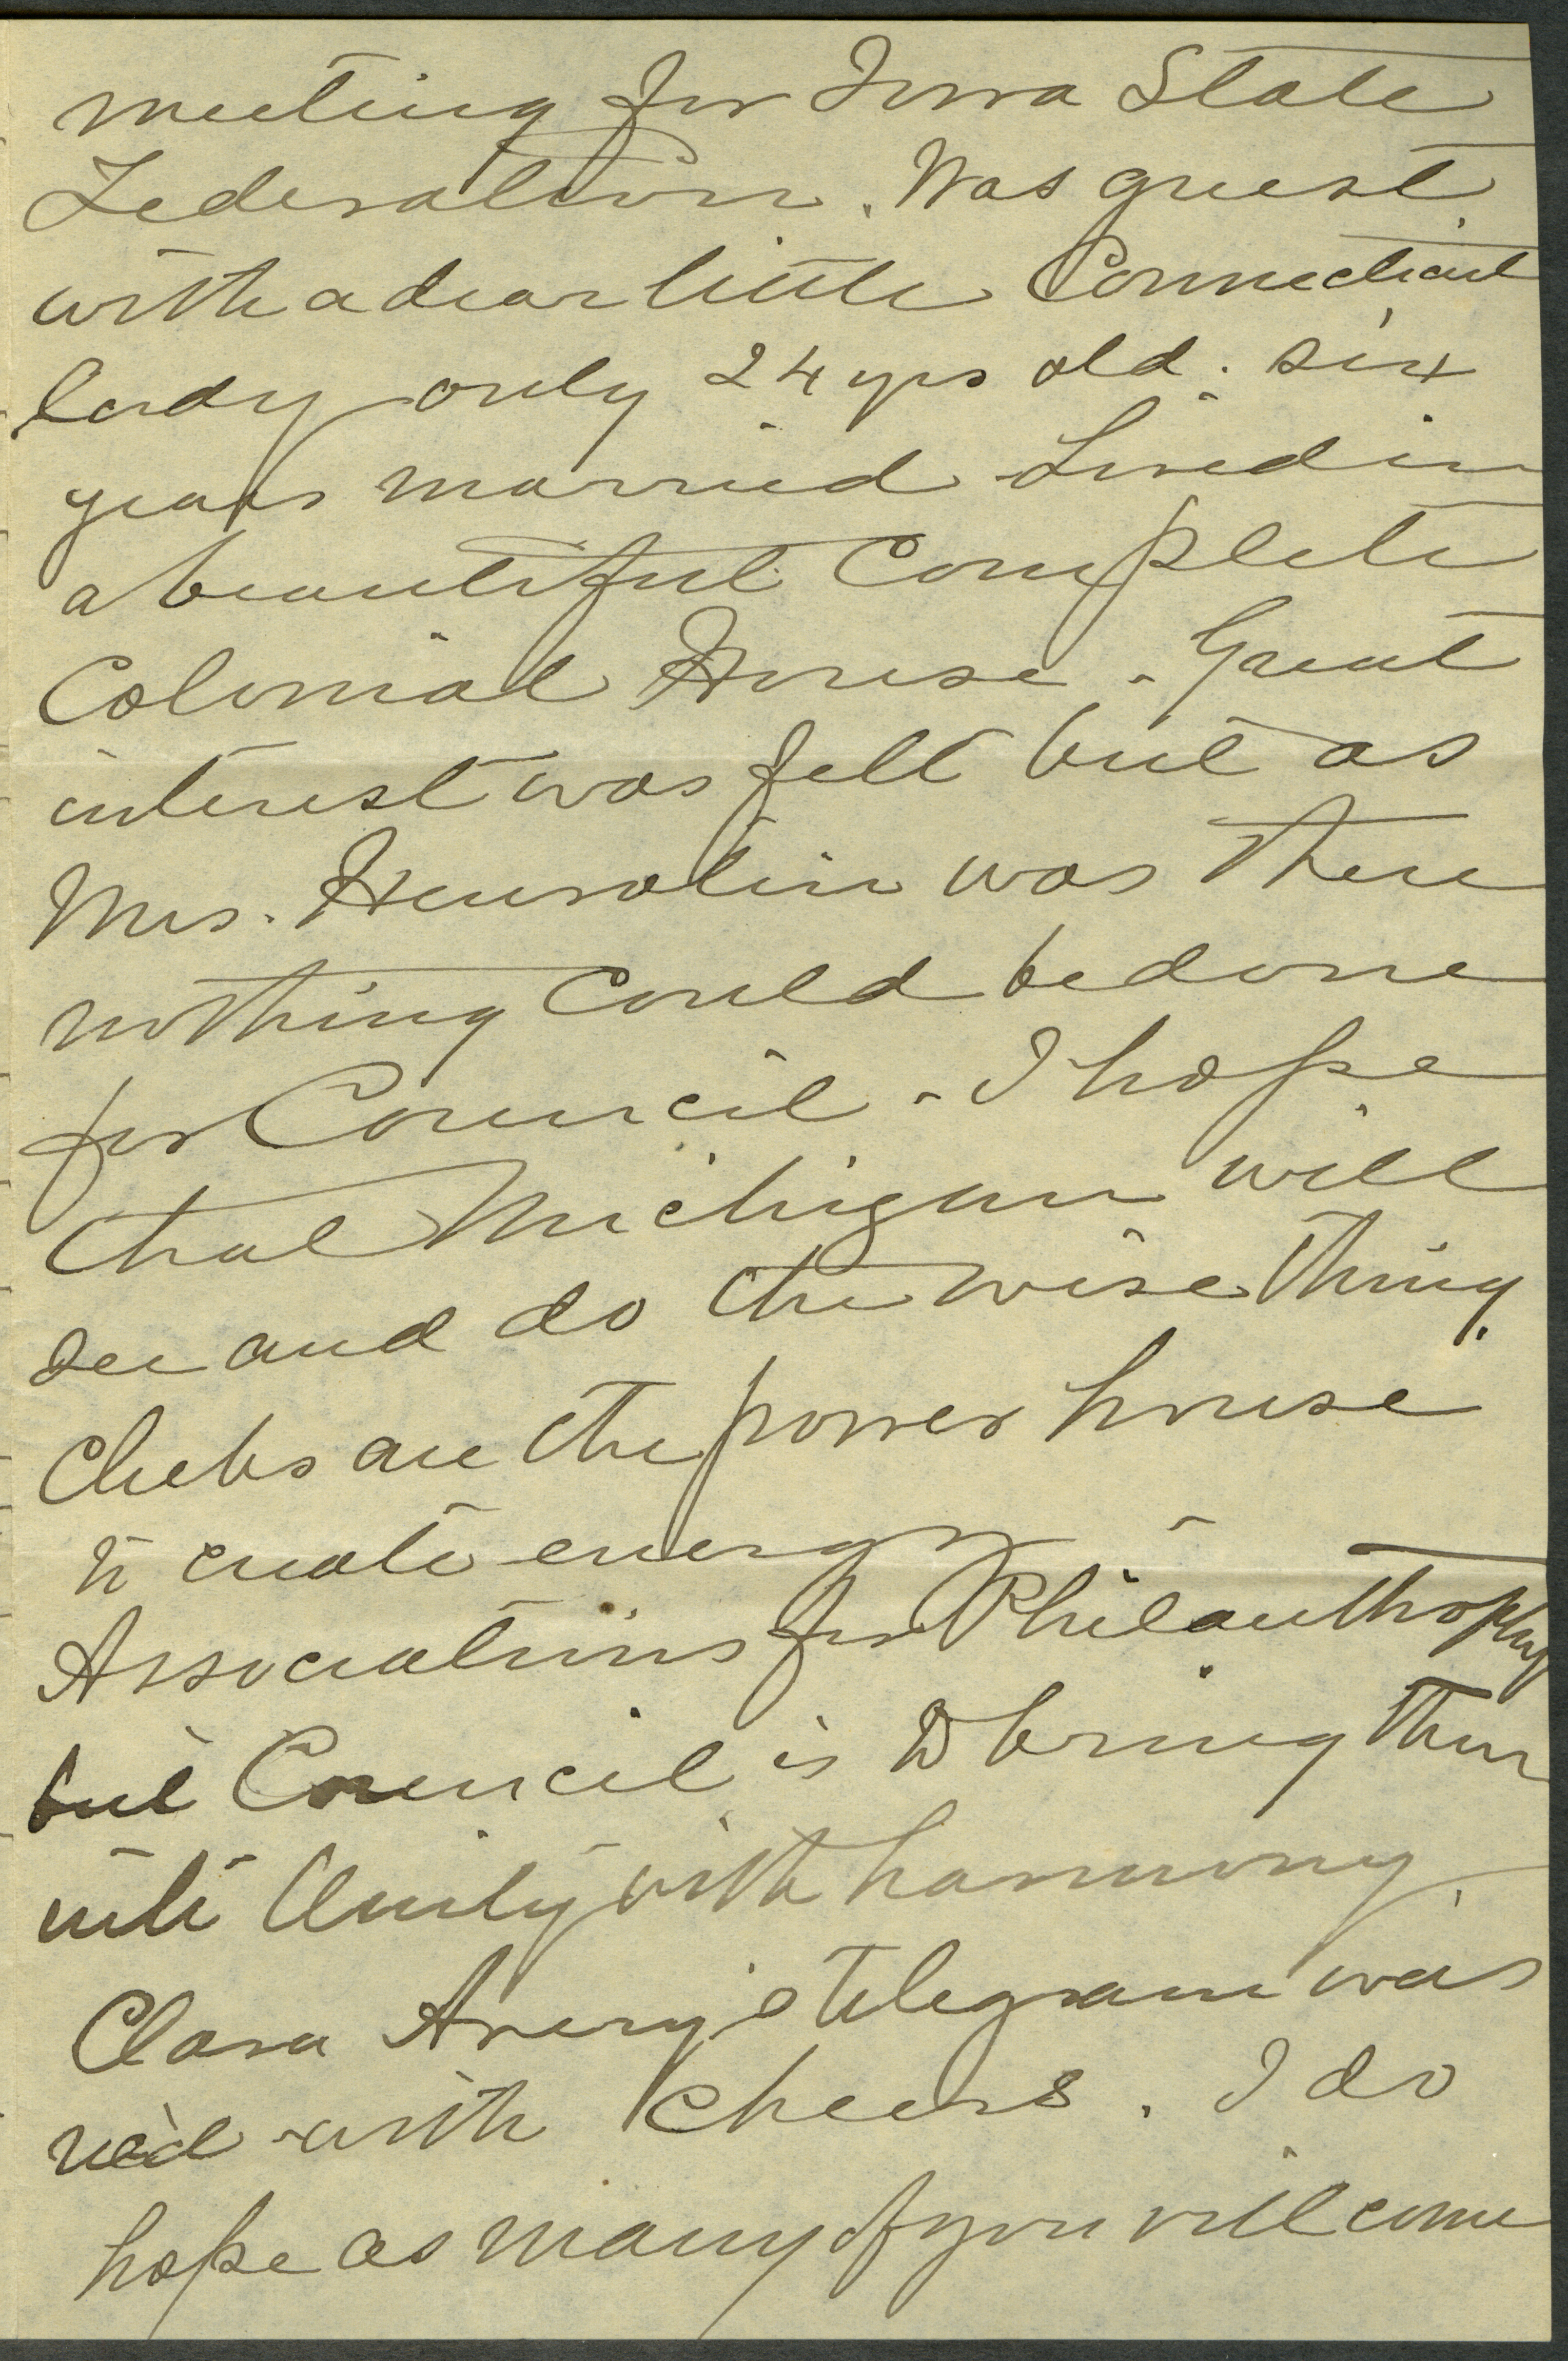 meeting for Iowa State
Federation. Was guest
with a dear little Connecticut
lady only 24 yrs old. six
years married Lived in
a beautiful Complete
Colonial House. Great
interest was felt but as
Mrs. Henrotin was there
nothing Could be done
for Council. I hope
that Michigan will
see and do the wise thing.
Clubs are the power house
to create energy
Associations for Philanthrophy
but Council is to bring them
into Unity with harmony.
Clara Avery's telegram was
rec'd with cheers. I do
hope as many of you will come